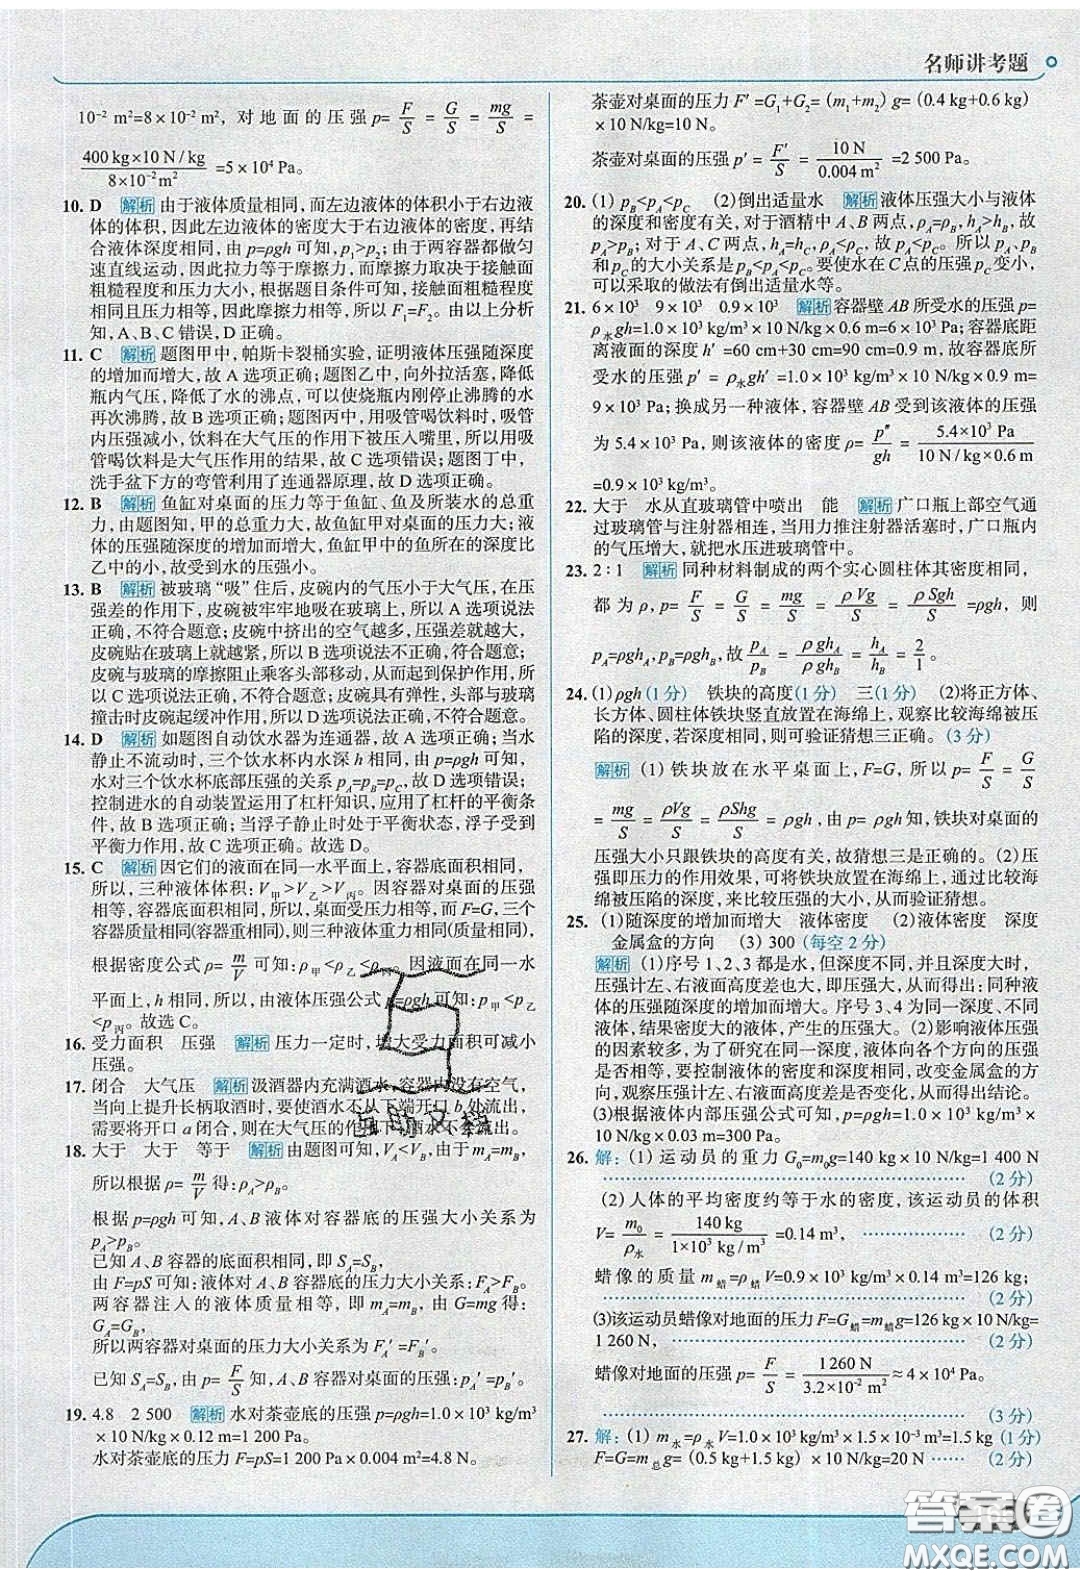 名师讲考题
10⁻² m²=8×10⁻² m²，对地面的压强p= F/S = G/S = mg/S =
400 kg×10 N/kg / 8×10⁻² m² =5×10⁴ Pa。
10. D 解析 由于液体质量相同,而左边液体的体积小于右边液
体的体积，因此左边液体的密度大于右边液体的密度，再结
合液体深度相同，由 p=ρgh 可知，p₁>p₂；由于两容器都做匀
速直线运动，因此拉力等于摩擦力，而摩擦力取决于接触面
粗糙程度和压力大小，根据题目条件可知，接触面粗糙程度
相同且压力相等，因此摩擦力相等，所以 F₁=F₂。由以上分析
知，A、B、C 错误，D 正确。
11. C 解析 题图甲中，帕斯卡裂桶实验，证明液体压强随深度
的增加而增大，故 A 选项正确；题图乙中，向外拉活塞，降低
瓶内气压，降低了水的沸点，可以使烧瓶内刚停止沸腾的水
再次沸腾，故 B 选项正确；题图丙中，用吸管喝饮料时，吸管
内压强减小，饮料在大气压的作用下被压入嘴里，所以用吸
管喝饮料是大气压作用的结果，故 C 选项错误；题图丁中，
洗手盆下方的弯管利用了连通器原理，故 D 选项正确。
12. B 解析 鱼缸对桌面的压力等于鱼缸、鱼及所装水的总重
力，由题图知，甲的总重力大，故鱼缸甲对桌面的压力大；液
体的压强随深度的增加而增大，鱼缸甲中的鱼所在的深度比
乙中的小，故受到水的压强小。
13. B 解析 被玻璃“吸”住后，皮碗内的气压小于大气压，在压
强差的作用下，皮碗被牢牢地吸在玻璃上，所以 A 选项说法
正确，不符合题意；皮碗中挤出的空气越多，压强差就越大，
皮碗贴在玻璃上就越紧，所以 B 选项说法不正确，符合题意；
皮碗与玻璃的摩擦阻止乘客头部移动，从而起到保护作用，所
以 C 选项说法正确，不符合题意；皮碗具有弹性，头部与玻璃
撞击时皮碗起缓冲作用，所以 D 选项说法正确，不符合题意。
14. D 解析 如题图自动饮水器为连通器，故 A 选项正确；当水
静止不流动时，三个饮水杯内水深 h 相同，由 p=ρgh 可知，
水对三个饮水杯底部压强的关系 p_A=p_B=p_C，故 D 选项错误；
控制进水的自动装置运用了杠杆知识，应用了杠杆的平衡条
件，故 B 选项正确；当浮子静止时处于平衡状态，浮子受到
平衡力作用，故 C 选项正确。故选 D。
15. C 解析 因它们的液面在同一水平面上，容器底面积相同，
所以，三种液体体积：V甲>V乙>V丙。因容器对桌面的压强
相等，容器底面积相同，所以，桌面受压力相等，而 F=G，三个
容器质量相同(容器重相同)，则三种液体重力相同(质量相同)，
根据密度公式 ρ= m/V 可知：ρ甲<ρ乙<ρ丙。因液面在同一水
平面上，h 相同，所以，由液体压强公式 p=ρgh 可知：p甲<p乙
<p丙。故选 C。
16. 受力面积 压强 解析 压力一定时，增大受力面积可减小
压强。
17. 闭合 大气压 解析 汲酒器内充满酒水，容器内没有空气，
当向上提长柄取酒时，要使酒水不从下端开口 b 处流出，
需要将开口 a 闭合，则在大气压的作用下酒水不会流出。
18. 大于 大于 等于 解析 由题图可知，V_A<V_B，由于 m_A=m_B，
所以根据 ρ= m/V 得：ρ_A>ρ_B。
根据 p=ρgh 可知，A、B 液体对容器底的压强大小关系为
p_A>p_B。
已知 A、B 容器的底面积相同，即 S_A=S_B，
由 F=pS 可知：液体对 A、B 容器底的压力大小关系：F_A>F_B。
两容器注入的液体质量相等，即 m_A=m_B，由 G=mg 得：
G_A=G_B，
所以两容器对桌面的压力大小关系为 F_A′=F_B′。
已知 S_A=S_B，由 p= F/S 知，容器对桌面的压强：p_A′=p_B′。
19. 4.8 2 500 解析 水对茶壶底的压强 p=ρgh=1.0×10³ kg/m³
×10 N/kg×0.12 m=1 200 Pa。
水对茶壶底的压力 F=pS=1 200 Pa×0.004 m²=4.8 N。
茶壶对桌面的压力 F′=G₁+G₂=(m₁+m₂)g=(0.4 kg+0.6 kg)
×10 N/kg=10 N。
茶壶对桌面的压强 p′= F′/S = 10 N / 0.004 m² =2 500 Pa。
20. (1) p_B<p_A<p_C (2)倒出适量水 解析 液体压强大小与液体
的深度和密度有关，对于酒精中 A、B 两点，ρ_A=ρ_B，h_A>h_B，故
p_A>p_B；对于 A、C 两点，h_A=h_C，ρ_A<ρ_C，故 p_A<p_C。所以 p_A、p_B
和 p_C 的大小关系是 p_B<p_A<p_C。要使水在 C 点的压强 p_C 变小，
可以采取的做法有倒出适量水等。
21. 6×10³ 9×10³ 0.9×10³ 解析 容器壁 AB 所受水的压强 p=
ρ水gh=1.0×10³ kg/m³×10 N/kg×0.6 m=6×10³ Pa；容器底距
离液面的深度 h′=60 cm+30 cm=90 cm=0.9 m，故容器底所
受水的压强 p′=ρ水gh′=1.0×10³ kg/m³×10 N/kg×0.9 m=
9×10³ Pa；换成另一种液体，容器壁 AB 受到该液体的压强
为 5.4×10³ Pa，则该液体的密度 ρ= p″/gh = 5.4×10³ Pa / 10 N/kg×0.6 m
=0.9×10³ kg/m³。
22. 大于 水从直玻璃管中喷出 能 解析 广口瓶上部空气通
过玻璃管与注射器相连，当用力推注射器活塞时，广口瓶内
的气压增大，就把水压进玻璃管中。
23. 2：1 解析 同种材料制成的两个实心圆柱体其密度相同，
都为 ρ，p= F/S = G/S = mg/S = ρVg/S = ρSgh/S =ρgh，则
p_A=ρgh_A，p_B=ρgh_B，故 p_A/p_B = ρgh_A/ρgh_B = h_A/h_B = 2/1。
24. (1)ρgh(1 分) 铁块的高度(1 分) 三(1 分) (2)将正方体、
长方体、圆柱体铁块竖直放置在海绵上，观察比较海绵被压
陷的深度，若深度相同，则可验证猜想三正确。(3 分)
解析 (1)铁块放在水平桌面上，F=G，所以 p= F/S = G/S
= mg/S = ρVg/S = ρShg/S =ρgh，由 p=ρgh 知，铁块对桌面的
压强大小只跟铁块的高度有关，故猜想三是正确的。(2)压
强即压力的作用效果，可将铁块放置在海绵上，通过比较海
绵被压陷的深度，来比较压强的大小，从而验证猜想。
25. (1)随深度的增加而增大 液体密度 (2)液体密度 深度
金属盒的方向 (3) 300 (每空 2 分)
解析 (1)序号 1、2、3 都是水，但深度不同，并且深度大时，
压强计左、右液面高度差也大，即压强大，从而得出：同种液
体的压强随深度的增加而增大。序号 3、4 为同一深度、不同
液体，结果密度大的液体，产生的压强大。(2)影响液体压强
的因素较多，为了研究在同一深度，液体向各个方向的压强
是否相等，要控制液体的密度和深度相同，改变金属盒的方
向，观察压强计左、右液面高度差是否变化，从而得出结论。
(3)根据液体内部压强公式可知，p=ρgh=1.0×10³ kg/m³×
10 N/kg×0.03 m=300 Pa。
26. 解：(1)运动员的重力 G₀=m₀g=140 kg×10 N/kg=1 400 N
(2 分)
(2)人体的平均密度约等于水的密度，该运动员的体积
V= m₀/ρ水 = 140 kg / 1×10³ kg/m³ =0.14 m³， (2 分)
蜡像的质量 m蜡=ρ蜡V=0.9×10³ kg/m³×0.14 m³=126 kg；
(2 分)
(3)该运动员蜡像对地面的压力 F=G蜡=m蜡g=126 kg×10 N/kg=
1 260 N， (2 分)
蜡像对地面的压强 p= F/S = 1 260 N / 3.2×10⁻² m² ≈4×10⁴ Pa。
(3 分)
27. 解：(1) m水=ρ水V=1.0×10³ kg/m³×1.5×10⁻³ m³=1.5 kg (1 分)
F=G=m总g=(0.5 kg+1.5 kg)×10 N/kg=20 N (2 分)
答案圈
MXQE.COM